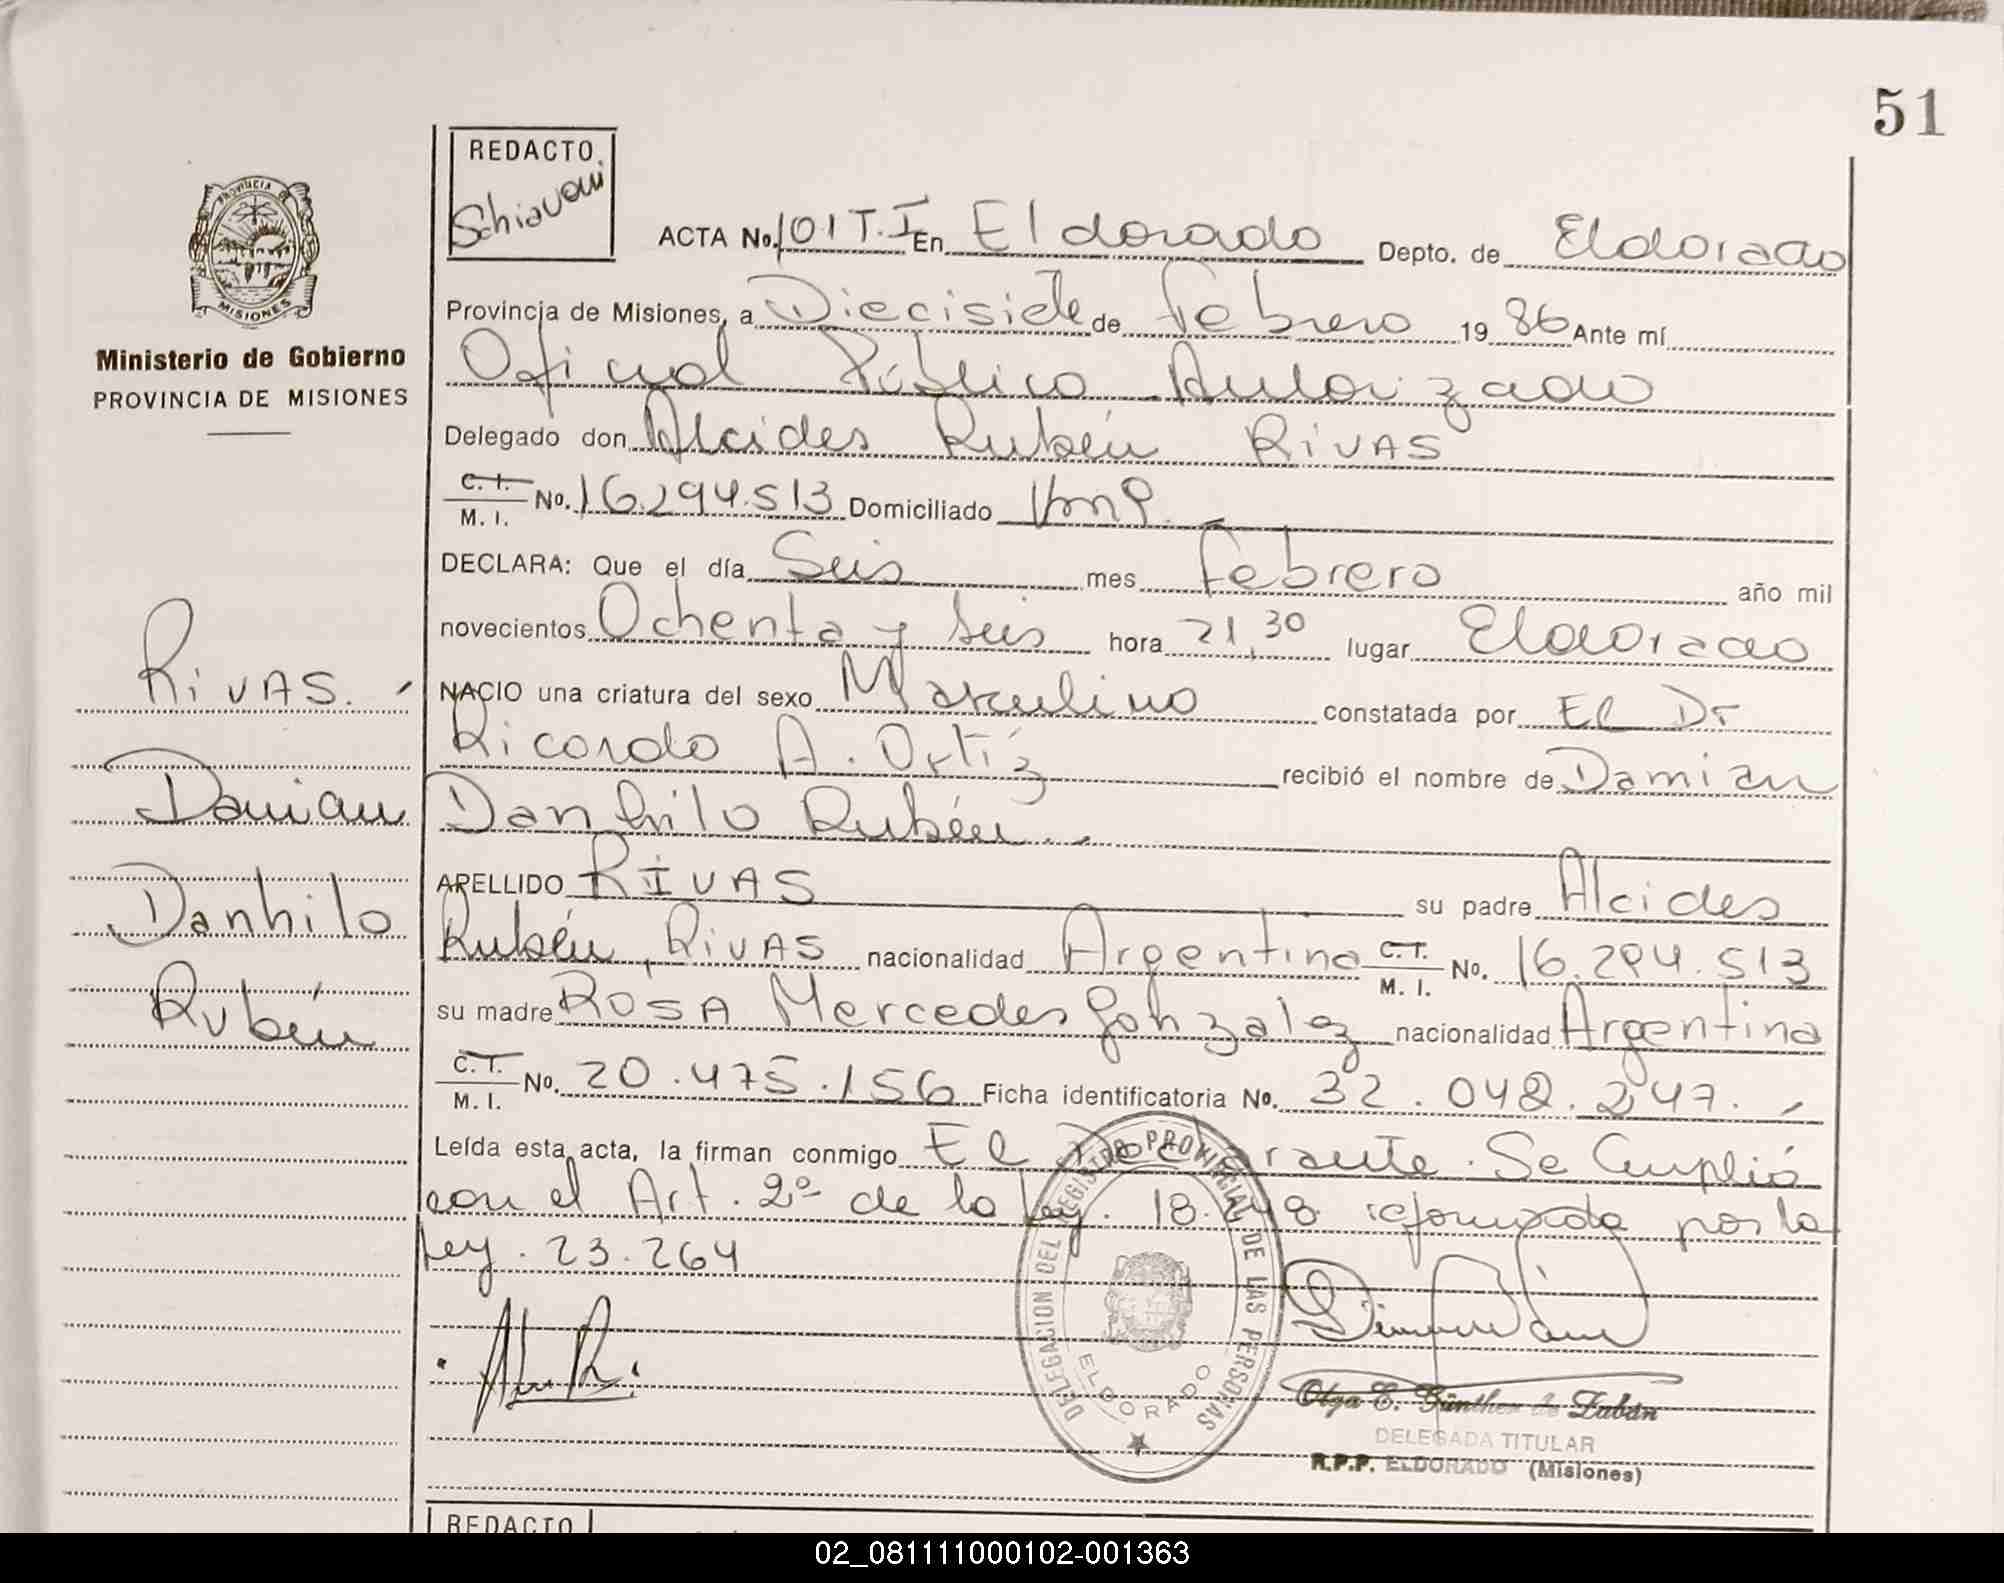 51
REDACTO.
Schiavoni
PROVINCIA DE
MISIONES
Ministerio de Gobierno
PROVINCIA DE MISIONES
ACTA No. 101 T.I En Eldorado Depto. de Eldorado
Provincia de Misiones, a Diecisiete de Febrero 19 86 Ante mí
Oficial Público Autorizado
Delegado don Alcides Rubén RIVAS
C.I. M.I. No. 16.294.513 Domiciliado
DECLARA: Que el día Seis mes Febrero año mil
novecientos Ochenta y Seis hora 21,30 lugar Eldorado
NACIO una criatura del sexo Masculino constatada por El Dr
Ricardo A. Ortíz recibió el nombre de Damian
Danhilo Rubén
APELLIDO RIVAS su padre Alcides
Rubén, RIVAS nacionalidad Argentina C.I. M.I. No. 16.294.513
su madre ROSA Mercedes Gonzalez nacionalidad Argentina
C.I. M.I. No. 20.475.156 Ficha identificatoria No. 32.042.247.
Leída esta acta, la firman conmigo El Declarante. Se Cumplió
con el Art. 2º de la Ley. 18.248 reformada por la
Ley. 23.264
RIVAS.
Damian
Danhilo
Rubén
DELEGACION DEL REGISTRO PROVINCIAL DE LAS PERSONAS
ELDORADO
Olga E. Günther de Zubán
DELEGADA TITULAR
R.P.P. ELDORADO (Misiones)
REDACTO
02_081111000102-001363